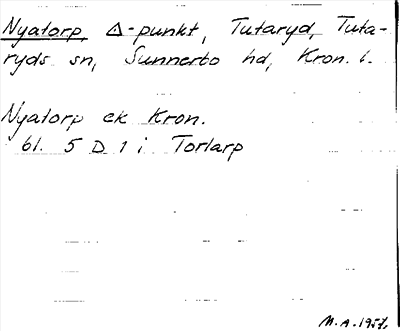 Nyatorp, △-punkt, Tutaryd, Tuta-
ryds sn, Sunnerbo hd, Kron. l.
Nyatorp ek Kron.
bl. 5 D 1 i Torlarp
M.A. 1957.